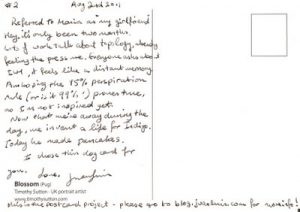 #2 Aug 2nd 2011
Referred to Maria as my girlfriend
Hey, it's only been two months.
Lots of work talk about topology, already
feeling the pressure. Everyone asks about
it feels like a distant memory.
Am hoping the 15% perspiration
rule (or is it 99%?) proves true,
no I is not inspired yet.
Now that we're away during the
day, we invent a life for Indigo.
Today he made pancakes.
I chose this dog card for
you. Love,
Blossom (Pug)
Timothy Sutton - UK portrait artist
www.timothysutton.com
this is the postcard project - please go to blog. for more info!